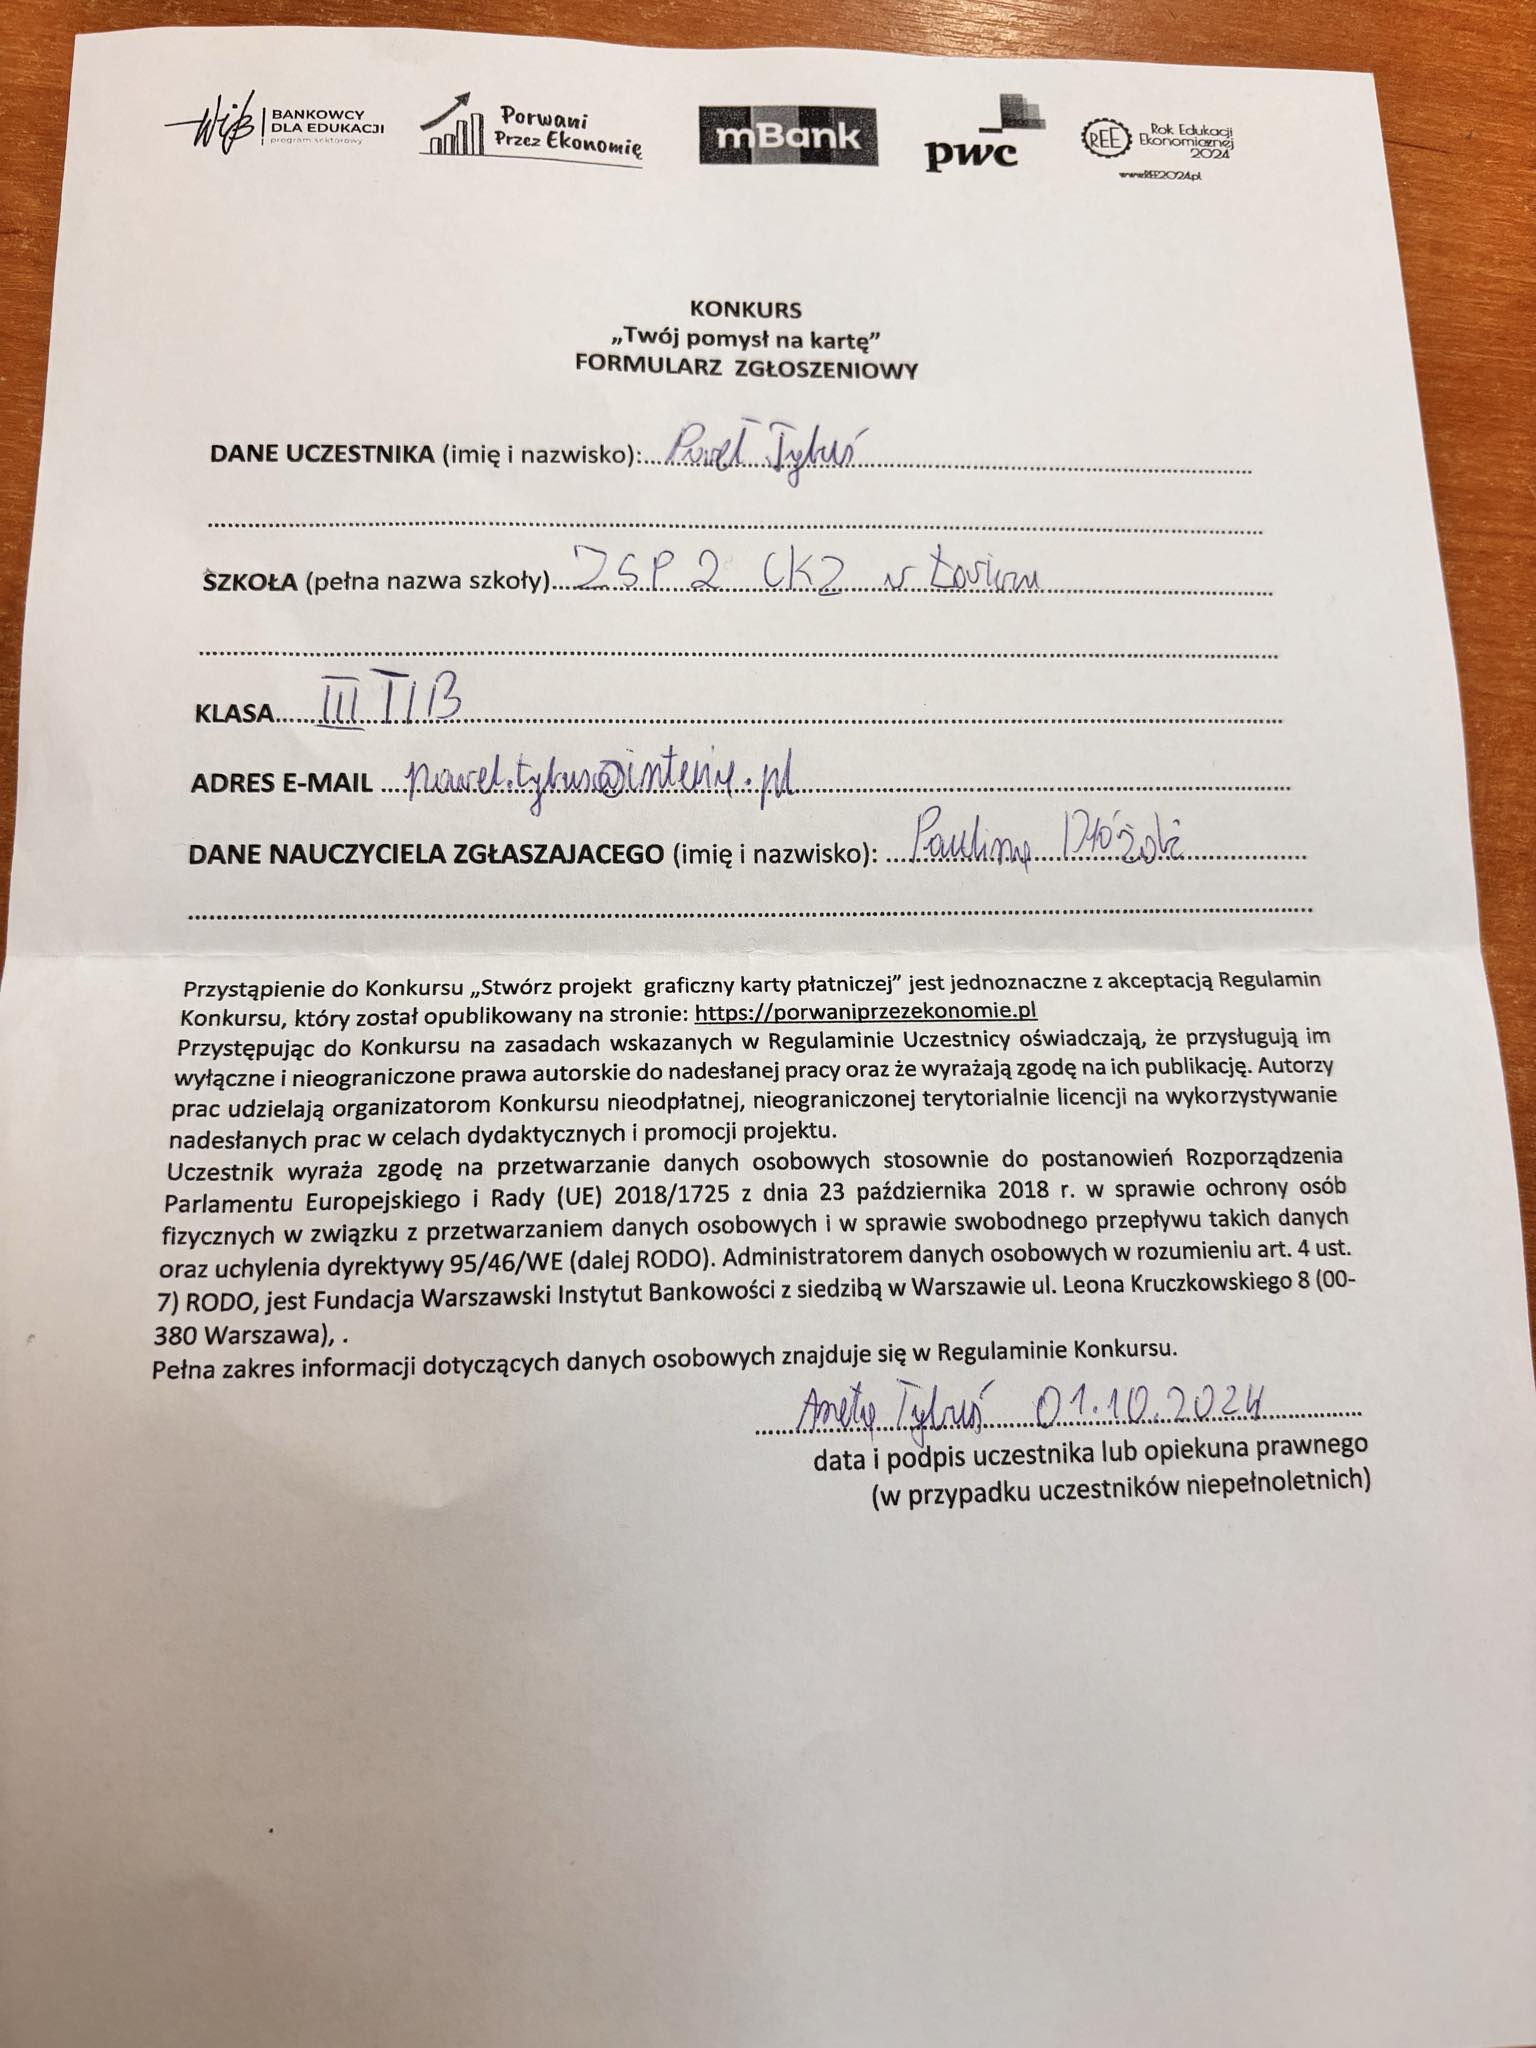 WIB BANKOWCY DLA EDUKACJI program sektorowy
Porwani Przez Ekonomię
mBank
pwc
REE Rok Edukacji Ekonomicznej 2024
www.REE2024.pl
KONKURS
„Twój pomysł na kartę”
FORMULARZ ZGŁOSZENIOWY
DANE UCZESTNIKA (imię i nazwisko): Paweł Tybuś
SZKOŁA (pełna nazwa szkoły) ZSP 2 CKZ w Łowiczu
KLASA III TIB
ADRES E-MAIL pawel.tybus@interia.pl
DANE NAUCZYCIELA ZGŁASZAJACEGO (imię i nazwisko): Paulina
Przystąpienie do Konkursu „Stwórz projekt graficzny karty płatniczej” jest jednoznaczne z akceptacją Regulamin
Konkursu, który został opublikowany na stronie: https://porwaniprzezekonomie.pl
Przystępując do Konkursu na zasadach wskazanych w Regulaminie Uczestnicy oświadczają, że przysługują im
wyłączne i nieograniczone prawa autorskie do nadesłanej pracy oraz że wyrażają zgodę na ich publikację. Autorzy
prac udzielają organizatorom Konkursu nieodpłatnej, nieograniczonej terytorialnie licencji na wykorzystywanie
nadesłanych prac w celach dydaktycznych i promocji projektu.
Uczestnik wyraża zgodę na przetwarzanie danych osobowych stosownie do postanowień Rozporządzenia
Parlamentu Europejskiego i Rady (UE) 2018/1725 z dnia 23 października 2018 r. w sprawie ochrony osób
fizycznych w związku z przetwarzaniem danych osobowych i w sprawie swobodnego przepływu takich danych
oraz uchylenia dyrektywy 95/46/WE (dalej RODO). Administratorem danych osobowych w rozumieniu art. 4 ust.
7) RODO, jest Fundacja Warszawski Instytut Bankowości z siedzibą w Warszawie ul. Leona Kruczkowskiego 8 (00-
380 Warszawa), .
Pełna zakres informacji dotyczących danych osobowych znajduje się w Regulaminie Konkursu.
Aneta Tybuś 01.10.2024
data i podpis uczestnika lub opiekuna prawnego
(w przypadku uczestników niepełnoletnich)